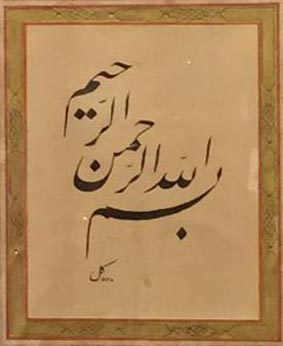 بسم
الله الرحمن
الرحیم